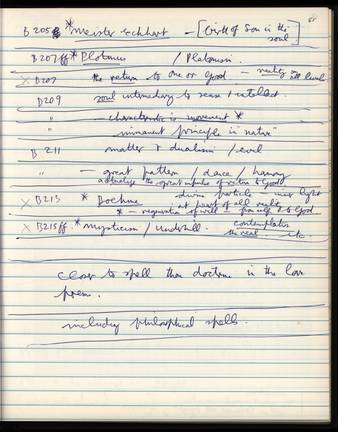 B205ff * Meister Eckhart – [Birth of Son in the soul]
B207ff * Plotinus / Platonism.
X B207 the return to One or Good – reality is at all levels
B209 soul intermediary to sense & intellect.
" – characteristic is movement *
" immanent principle in nature"
B 211 matter & dualism / evil
" – great pattern / dance / harmony
X B213 * Boehme – divine particle – inner light
is at part of all reality
* – regeneration of will – from self to God
X B215ff. * mysticism / Underhill. contemplation
the real etc.
closer to spell than doctrine in the love
poem.
including philosophical spells.